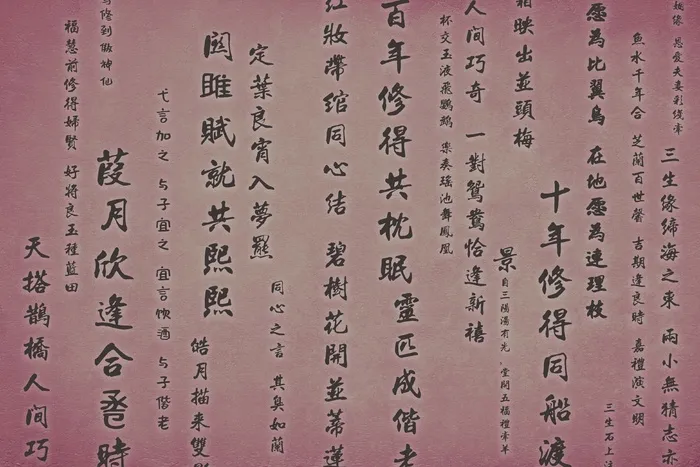 恩愛夫妻彩綫牽
三生緣締海之東 兩小無猜志亦
魚水千年合 芝蘭百世馨 吉期逢良時 嘉禮演文明
三生石上
愿為比翼鳥 在地愿為連理枝
十年修得同船渡
相映出並頭梅
景自三陽湯有光 堂開五福禮牽羊
人间巧奇 一對鴛鴦恰逢新禧
杯交玉液飛鸚鵡 樂奏瑤池舞鳳凰
百年修得共枕眠靈匹成偕老
紅妝帶綰同心結 碧樹花開並蒂蓮
同心之言 其臭如蘭
定葉良宵入夢羆
関雎賦就共熙熙
皓月描来雙
弋言加之 与子宜之 宜言饮酒 与子偕老
葭月欣逢合卺時
修到傲神仙
福慧前修得婦賢 好將良玉種藍田
天搭鵲橋人间巧